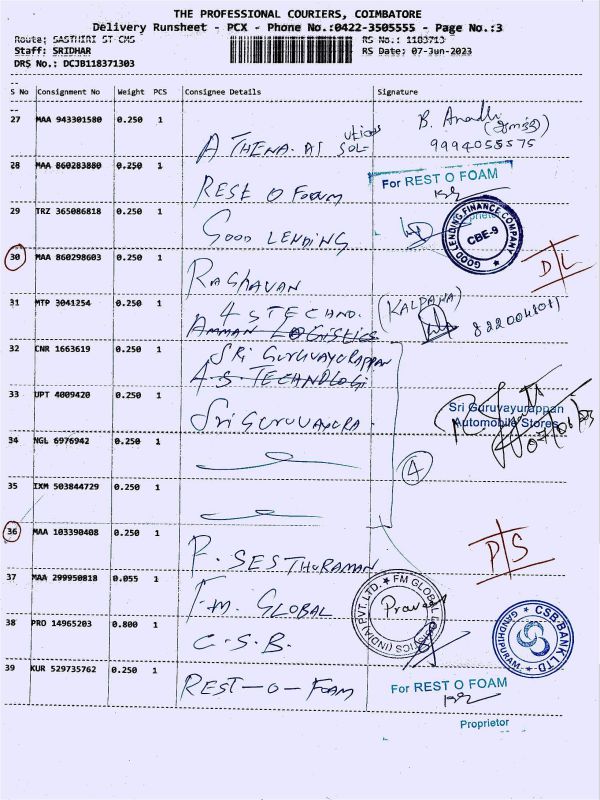 THE PROFESSIONAL COURIERS, COIMBATORE
Delivery Runsheet - PCX - Phone No.:0422-3505555 - Page No.:3
Route: SASTHIRI ST CMS RS No.: 1183713
Staff: SRIDHAR RS Date: 07-Jun-2023
DRS No.: DCJB118371303
S No Consignment No Weight PCS Consignee Details Signature
27 MAA 943301580 0.250 1 ATHENA. AI SOL- utions B. Anandhi (ஆனந்தி)
9994055575
28 MAA 860283880 0.250 1 REST O FOAM For REST O FOAM
Proprietor
29 TRZ 365086818 0.250 1 GOOD LENDING GOOD LENDING FINANCE COMPANY CBE-9
30 MAA 860298603 0.250 1 RAGHAVAN D/L
31 MTP 3041254 0.250 1 4 S TECHNO. (KALPANA)
AMMAN LOGISTICS
32 CNR 1663619 0.250 1 SRI GURUVAYURAPPAN
4.S. TECHNOLOGI
33 UPT 4009420 0.250 1 Sri GURUVAYURA. Sri Guruvayurappan
Automobile Stores
07/06/23
34 NGL 6976942 0.250 1
4
35 IXM 503844729 0.250 1
36 MAA 103390408 0.250 1 P. SESTHURAMAN P/S
37 MAA 299950818 0.055 1 F.M. GLOBAL FM GLOBAL LOGISTICS (INDIA) PVT. LTD. Praveen
38 PRO 14965203 0.800 1 C.S.B. CSB BANK LTD. GANDHIPURAM
39 KUR 529735762 0.250 1 REST-O-FOAM For REST O FOAM
Proprietor